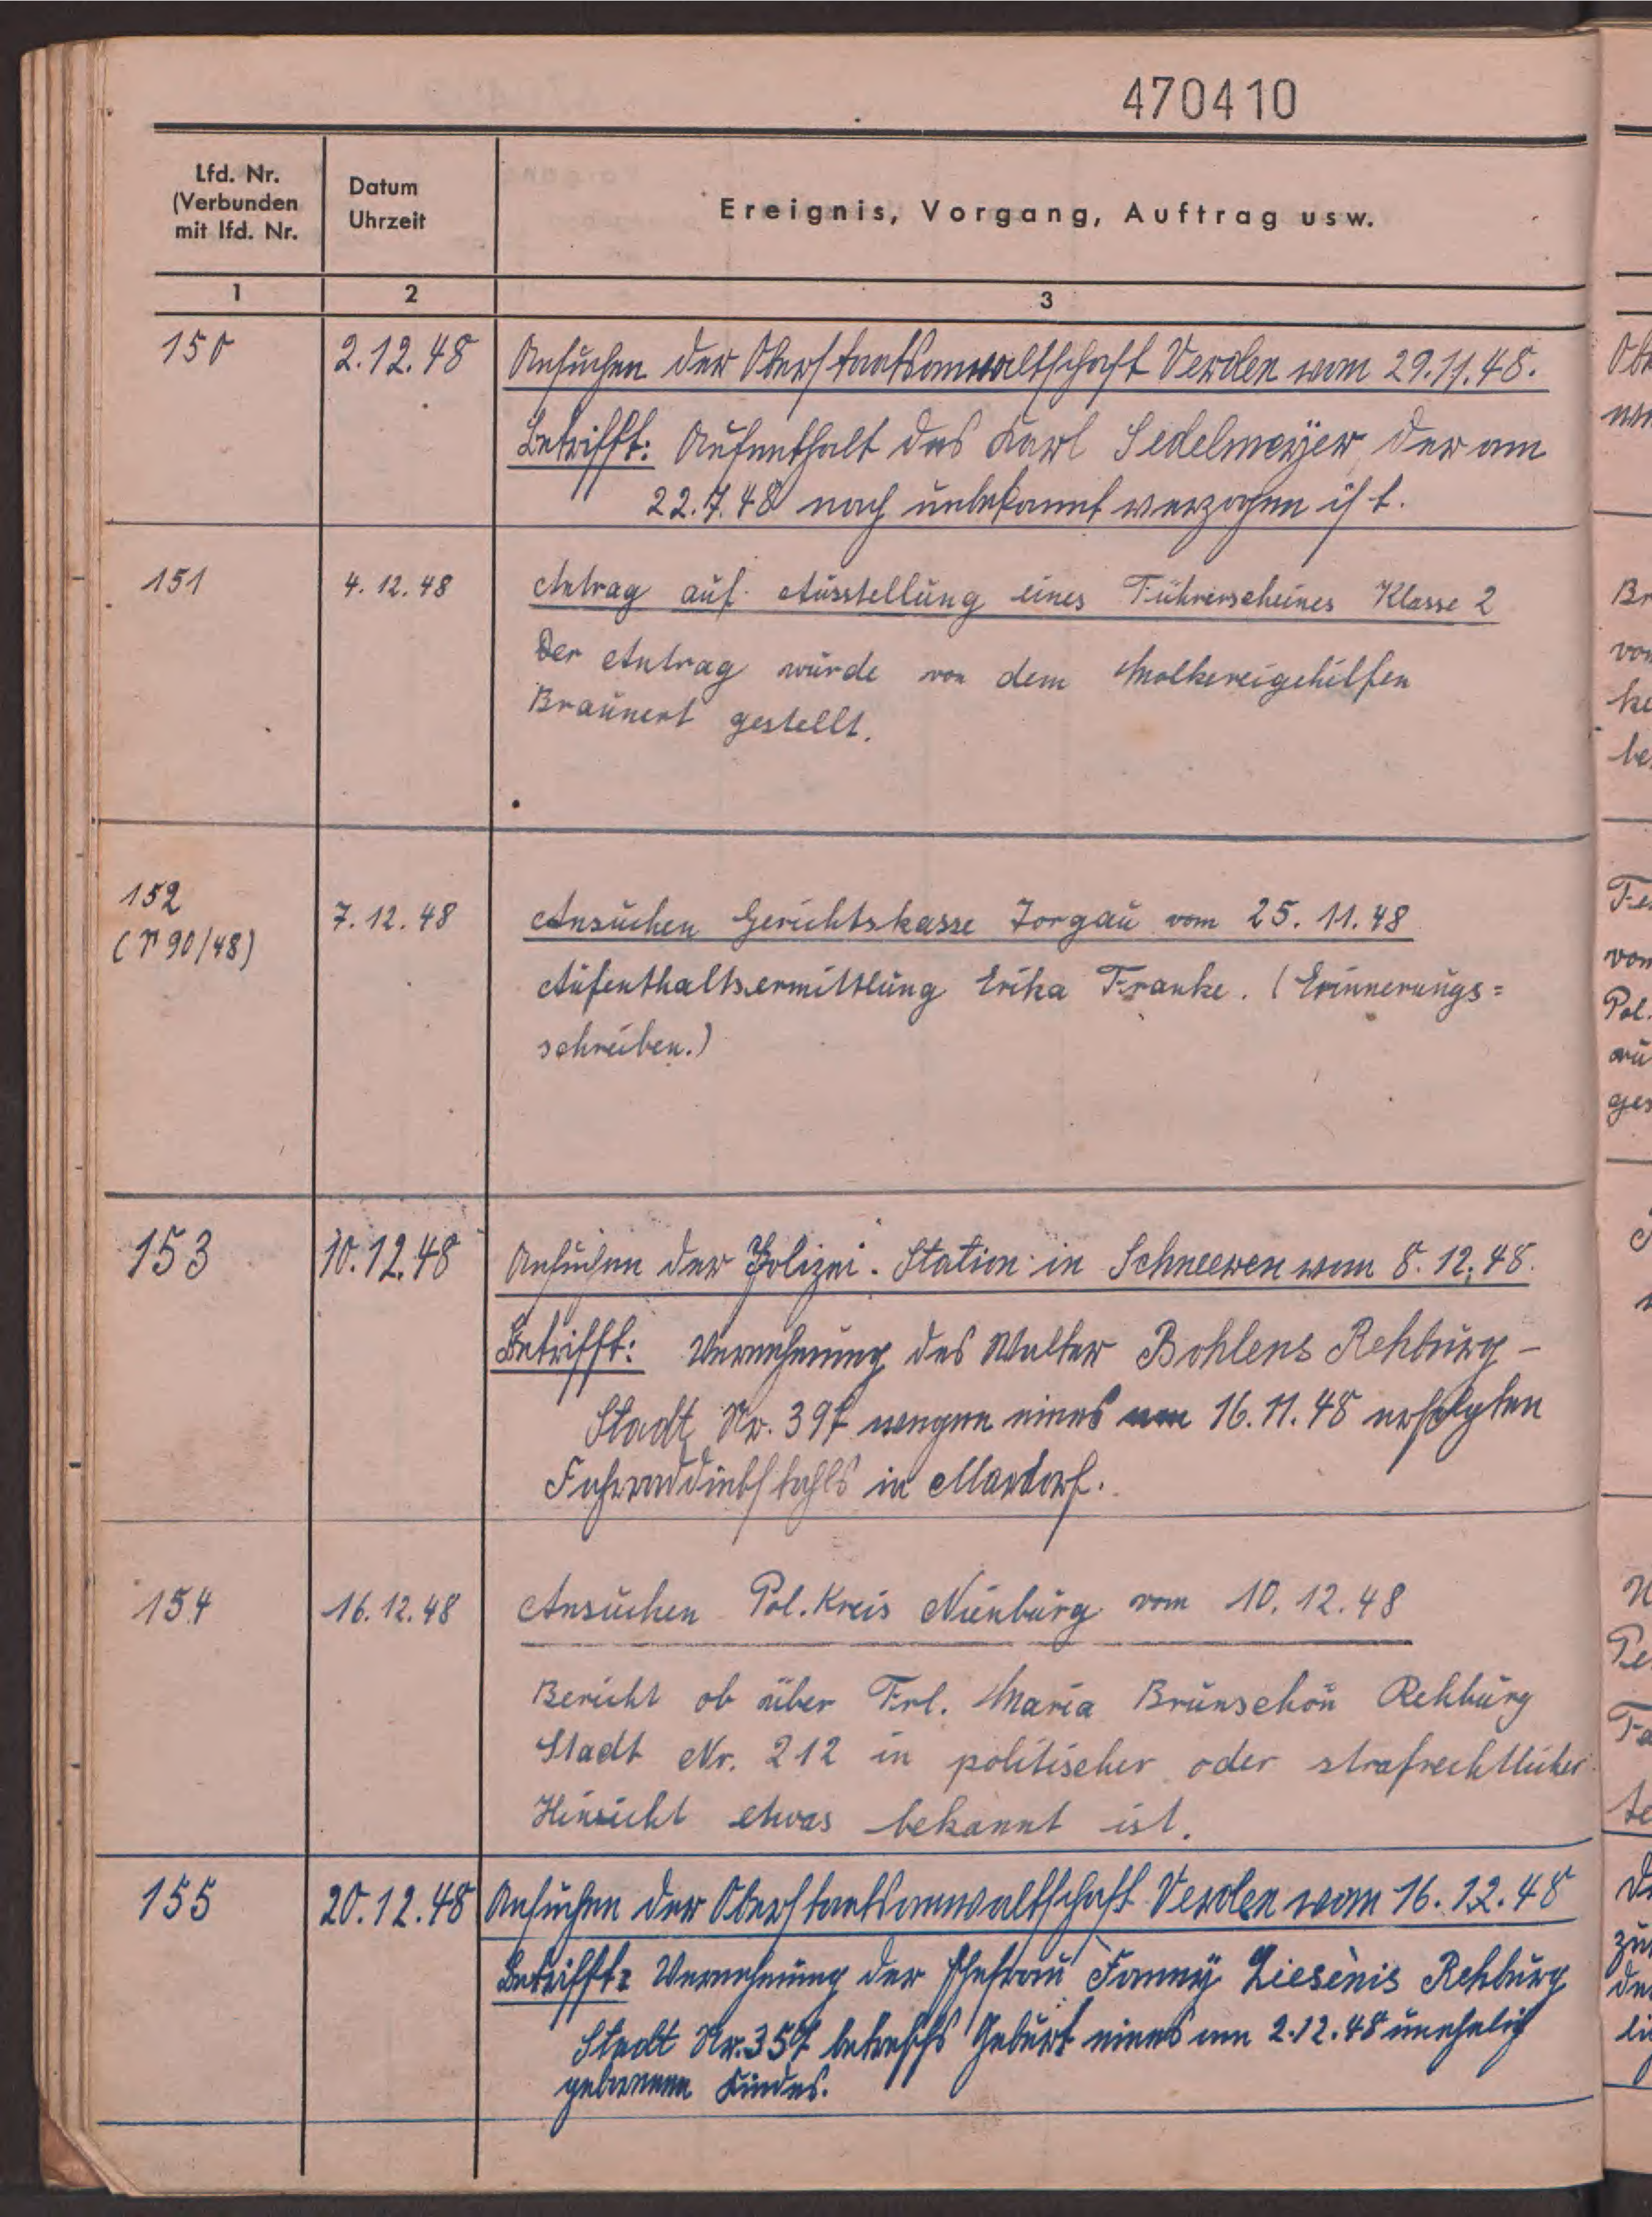 470410
Lfd. Nr.
(Verbunden
mit lfd. Nr.
Datum
Uhrzeit
Ereignis, Vorgang, Auftrag usw.
1 2 3
150 2.12.48 Ansuchen der Oberstaatsanwaltschaft Verden vom 29.11.48.
Betrifft: Aufenthalt des Karl Sedelmeyer, der am
22.7.48 nach unbekannt verzogen ist.
151 4.12.48 Antrag auf Ausstellung eines Führerscheines Klasse 2
Der Antrag wurde von dem Molkereigehilfen
Braunert gestellt.
152 7.12.48 Ansuchen Gerichtskasse Torgau vom 25.11.48
(V 90/48)
Aufenthaltsermittlung Erika Franke. (Erinnerungs=
schreiben.)
153 10.12.48 Ansuchen der Polizei-Station in Schneeren vom 8.12.48.
Betrifft: Vernehmung des Walter Bohlens Rehburg-
Stadt Nr. 397 wegen eines am 16.11.48 erfolgten
Fahrraddiebstahls in Mardorf.
154 16.12.48 Ansuchen Pol. Kreis Nienburg vom 10.12.48
Bericht ob über Frl. Maria Brunschön Rehburg
Stadt Nr. 212 in politischer oder strafrechtlicher
Hinsicht etwas bekannt ist.
155 20.12.48 Ansuchen der Oberstaatsanwaltschaft Verden vom 16.12.48
Betrifft: Vernehmung der Ehefrau Fanny Liesenis Rehburg
Stadt Nr. 357 betreffs Geburt eines am 2.12.48 unehelich
geborenen Kindes.